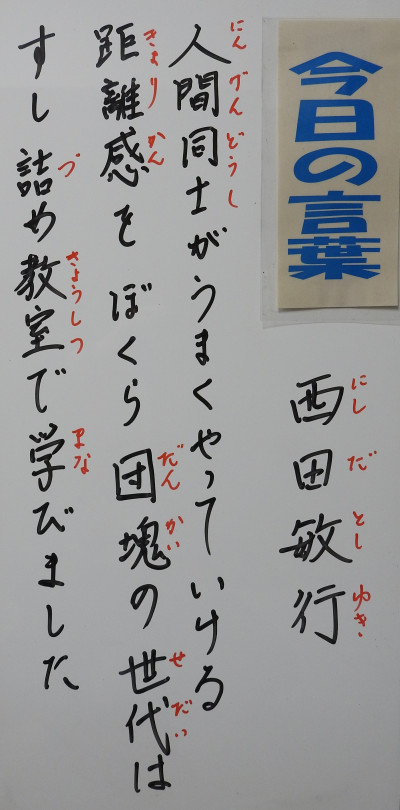 今日の言葉
西田敏行
にしだとしゆき
人間同士がうまくやっていける
にんげんどうし
距離感をぼくら団塊の世代は
きょりかんだんかいせだい
すし詰め教室で学びました
づきょうしつまな